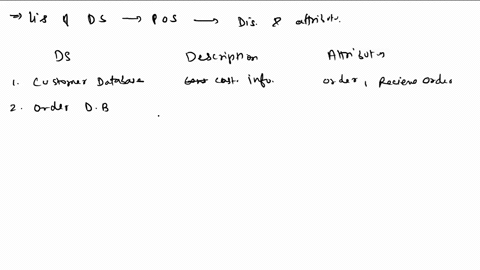 ⇒ Lis of DS → POS → Dis. & attribut.
DS Description Attribut→
1. Customer Database cost. info. order, Recieve Order
2. Order D.B